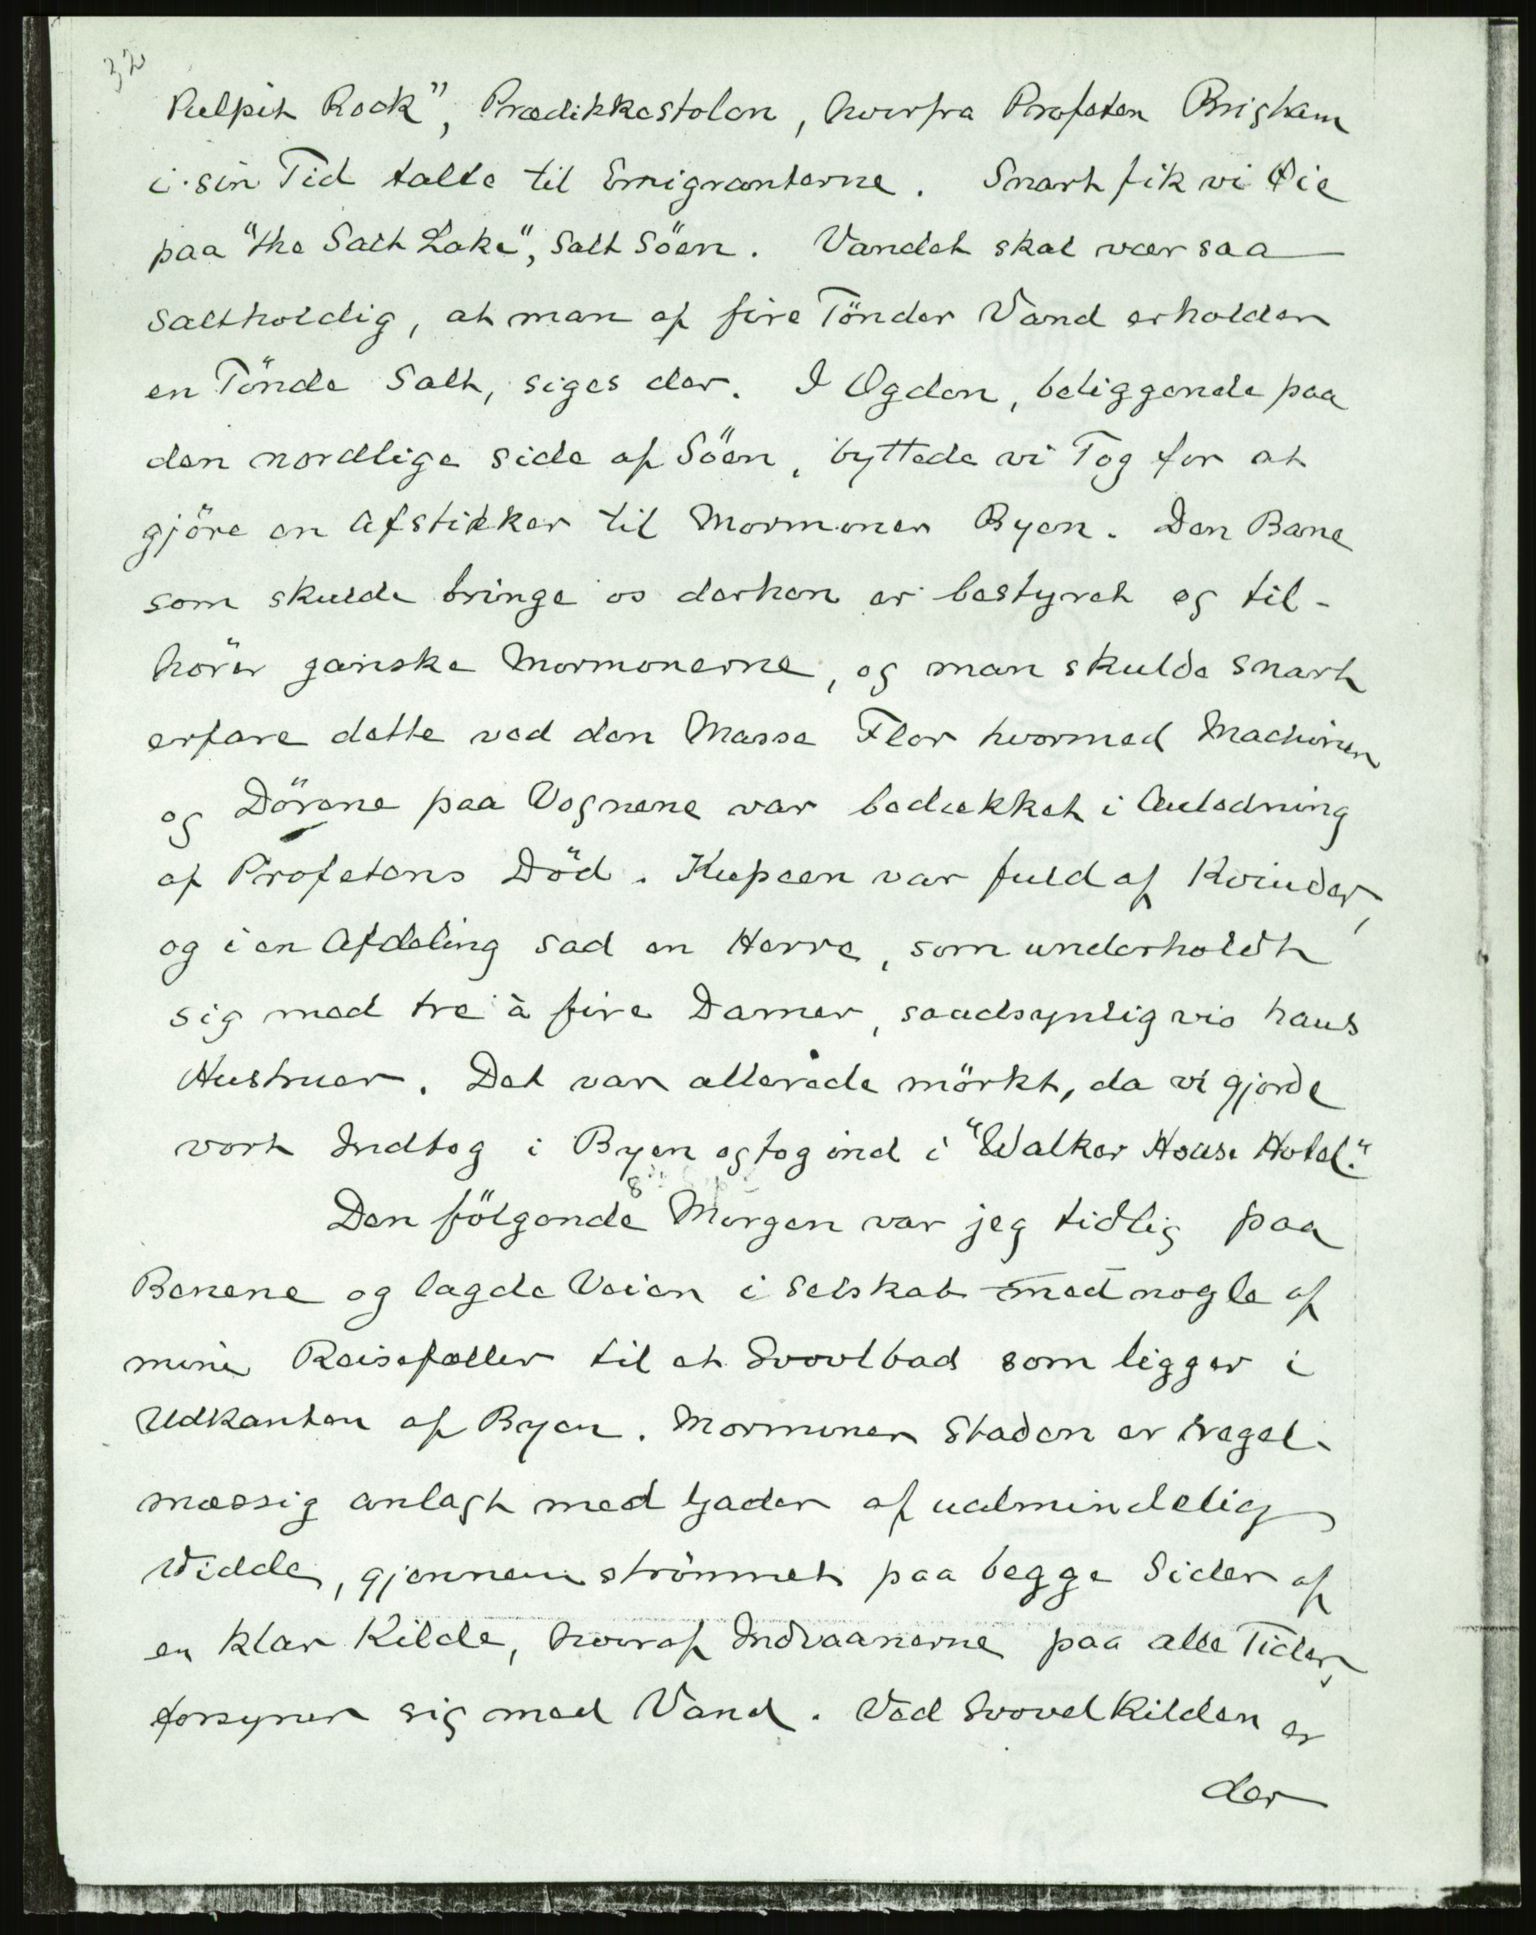 32
Pulpit Rock", Prædikkestolen, hvorfra Profeten Brigham
i sin Tid talte til Emigranterne. Snart fik vi Øie
paa "the Salt Lake", Salt Söen. Vandet skal vær saa
saltholdig, at man af fire Tönder Vand erholder
en Tönde Salt, siges der. I Ogden, beliggende paa
den nordlige side af Söen, byttede vi Tog for at
gjöre en Afstikker til Mormoner Byen. Den Bane
som skulde bringe os derhen er bestyret og til-
hörer ganske Mormonerne, og man skulde snart
erfare dette ved den Masse Flor hvormed Machinen
og Dörene paa Vognene var bedækket i Anledning
af Profetens Död. Kupeen var fuld af Kvinder,
og i en Afdeling sad en Herre, som underholdt
sig med tre à fire Damer, sandsynligvis hans
Hustruer. Det var allerede mörkt, da vi gjorde
vort Indtog i Byen og tog ind i "Walker House Hotel."
8
Den fölgende Morgen var jeg tidlig paa
Benene og lagde Veien i Selskab med nogle af
mine Reisefæller til et Svovlbad som ligger i
Udkanten af Byen. Mormoner Staden er regel-
mæssig anlagt med Gader af ualmindelig
Vidde, gjennemströmmet paa begge Sider af
en klar Kilde, hvoraf Indvaanerne paa alle Tider
forsyner sig med Vand. Ved Svovelkilden er
der